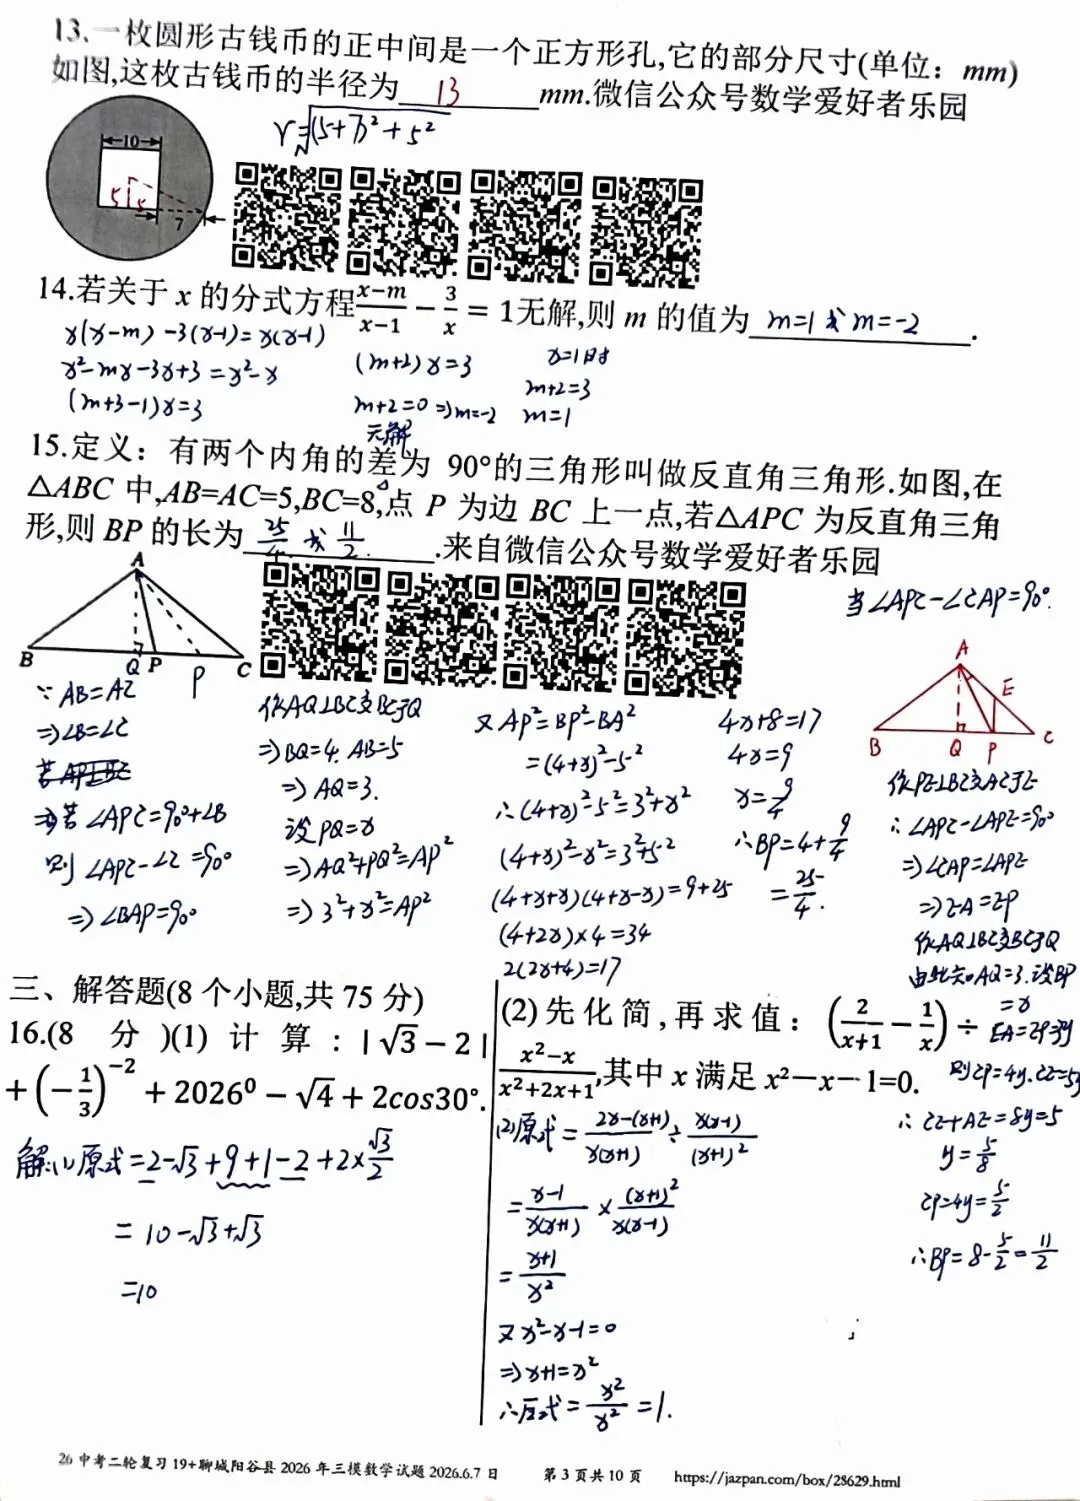 13.一枚圆形古钱币的正中间是一个正方形孔,它的部分尺寸(单位：mm)
如图,这枚古钱币的半径为 13 mm.微信公众号数学爱好者乐园
r=√(5+7)²+5²
10
5 5
7
14.若关于 x 的分式方程 (x−m)/(x−1) − 3/x = 1无解,则 m 的值为 m=1或m=-2 .
x(x-m)-3(x-1)=x(x-1)
x²-mx-3x+3=x²-x
(m+3-1)x=3
(m+2)x=3
m+2=0⇒m=-2
无解
x=1时
m+2=3
m=1
15.定义：有两个内角的差为 90°的三角形叫做反直角三角形.如图,在
△ABC 中,AB=AC=5,BC=8,点 P 为边 BC 上一点,若△APC 为反直角三角
形,则 BP 的长为 25/4 或 11/2 .来自微信公众号数学爱好者乐园
A
B Q P P C
∵AB=AC
⇒∠B=∠C
若AP⊥BC
⇒若∠APC=90°+∠B
则∠APC-∠C=90°
⇒∠BAP=90°
作AQ⊥BC交BC于Q
⇒BQ=4. AB=5
⇒AQ=3.
设PQ=x
⇒AQ²+PQ²=AP²
⇒3²+x²=AP²
又AP²=BP²-BA²
=(4+x)²-5²
∴(4+x)²-5²=3²+x²
(4+x)²-x²=3²+5²
(4+x+x)(4+x-x)=9+25
(4+2x)×4=34
2(2x+4)=17
4x+8=17
4x=9
x=9/4
∴BP=4+9/4
=25/4.
当∠APC-∠CAP=90°.
A
E
B Q P C
作PE⊥BC交AC于E
∴∠APC-∠APE=90°
⇒∠CAP=∠APE
⇒EA=EP
作AQ⊥BC交BC于Q
由此知AQ=3.设BP
=x
EA=EP=3y
则CP=4y.CE=5y
∴CE+AE=8y=5
y=5/8
CP=4y=5/2
∴BP=8-5/2=11/2
三、解答题(8 个小题,共 75 分)
16.(8 分)(1) 计算：|√3−2|
+(−1/3)⁻²+2026⁰−√4+2cos30°.
解:(1)原式=2-√3+9+1-2+2×√3/2
=10-√3+√3
=10
(2)先化简,再求值：(2/(x+1) − 1/x)÷
(x²−x)/(x²+2x+1),其中 x 满足 x²−x−1=0.
(2)原式=(2x-(x+1))/(x(x+1))÷(x(x-1))/((x+1)²)
=(x-1)/(x(x+1))×((x+1)²)/(x(x-1))
=(x+1)/x²
又x²-x-1=0
⇒x+1=x²
∴原式=x²/x²=1.
26 中考二轮复习 19+聊城阳谷县 2026 年三模数学试题 2026.6.7 日 第 3 页共 10 页 https://jazpan.com/box/28629.html